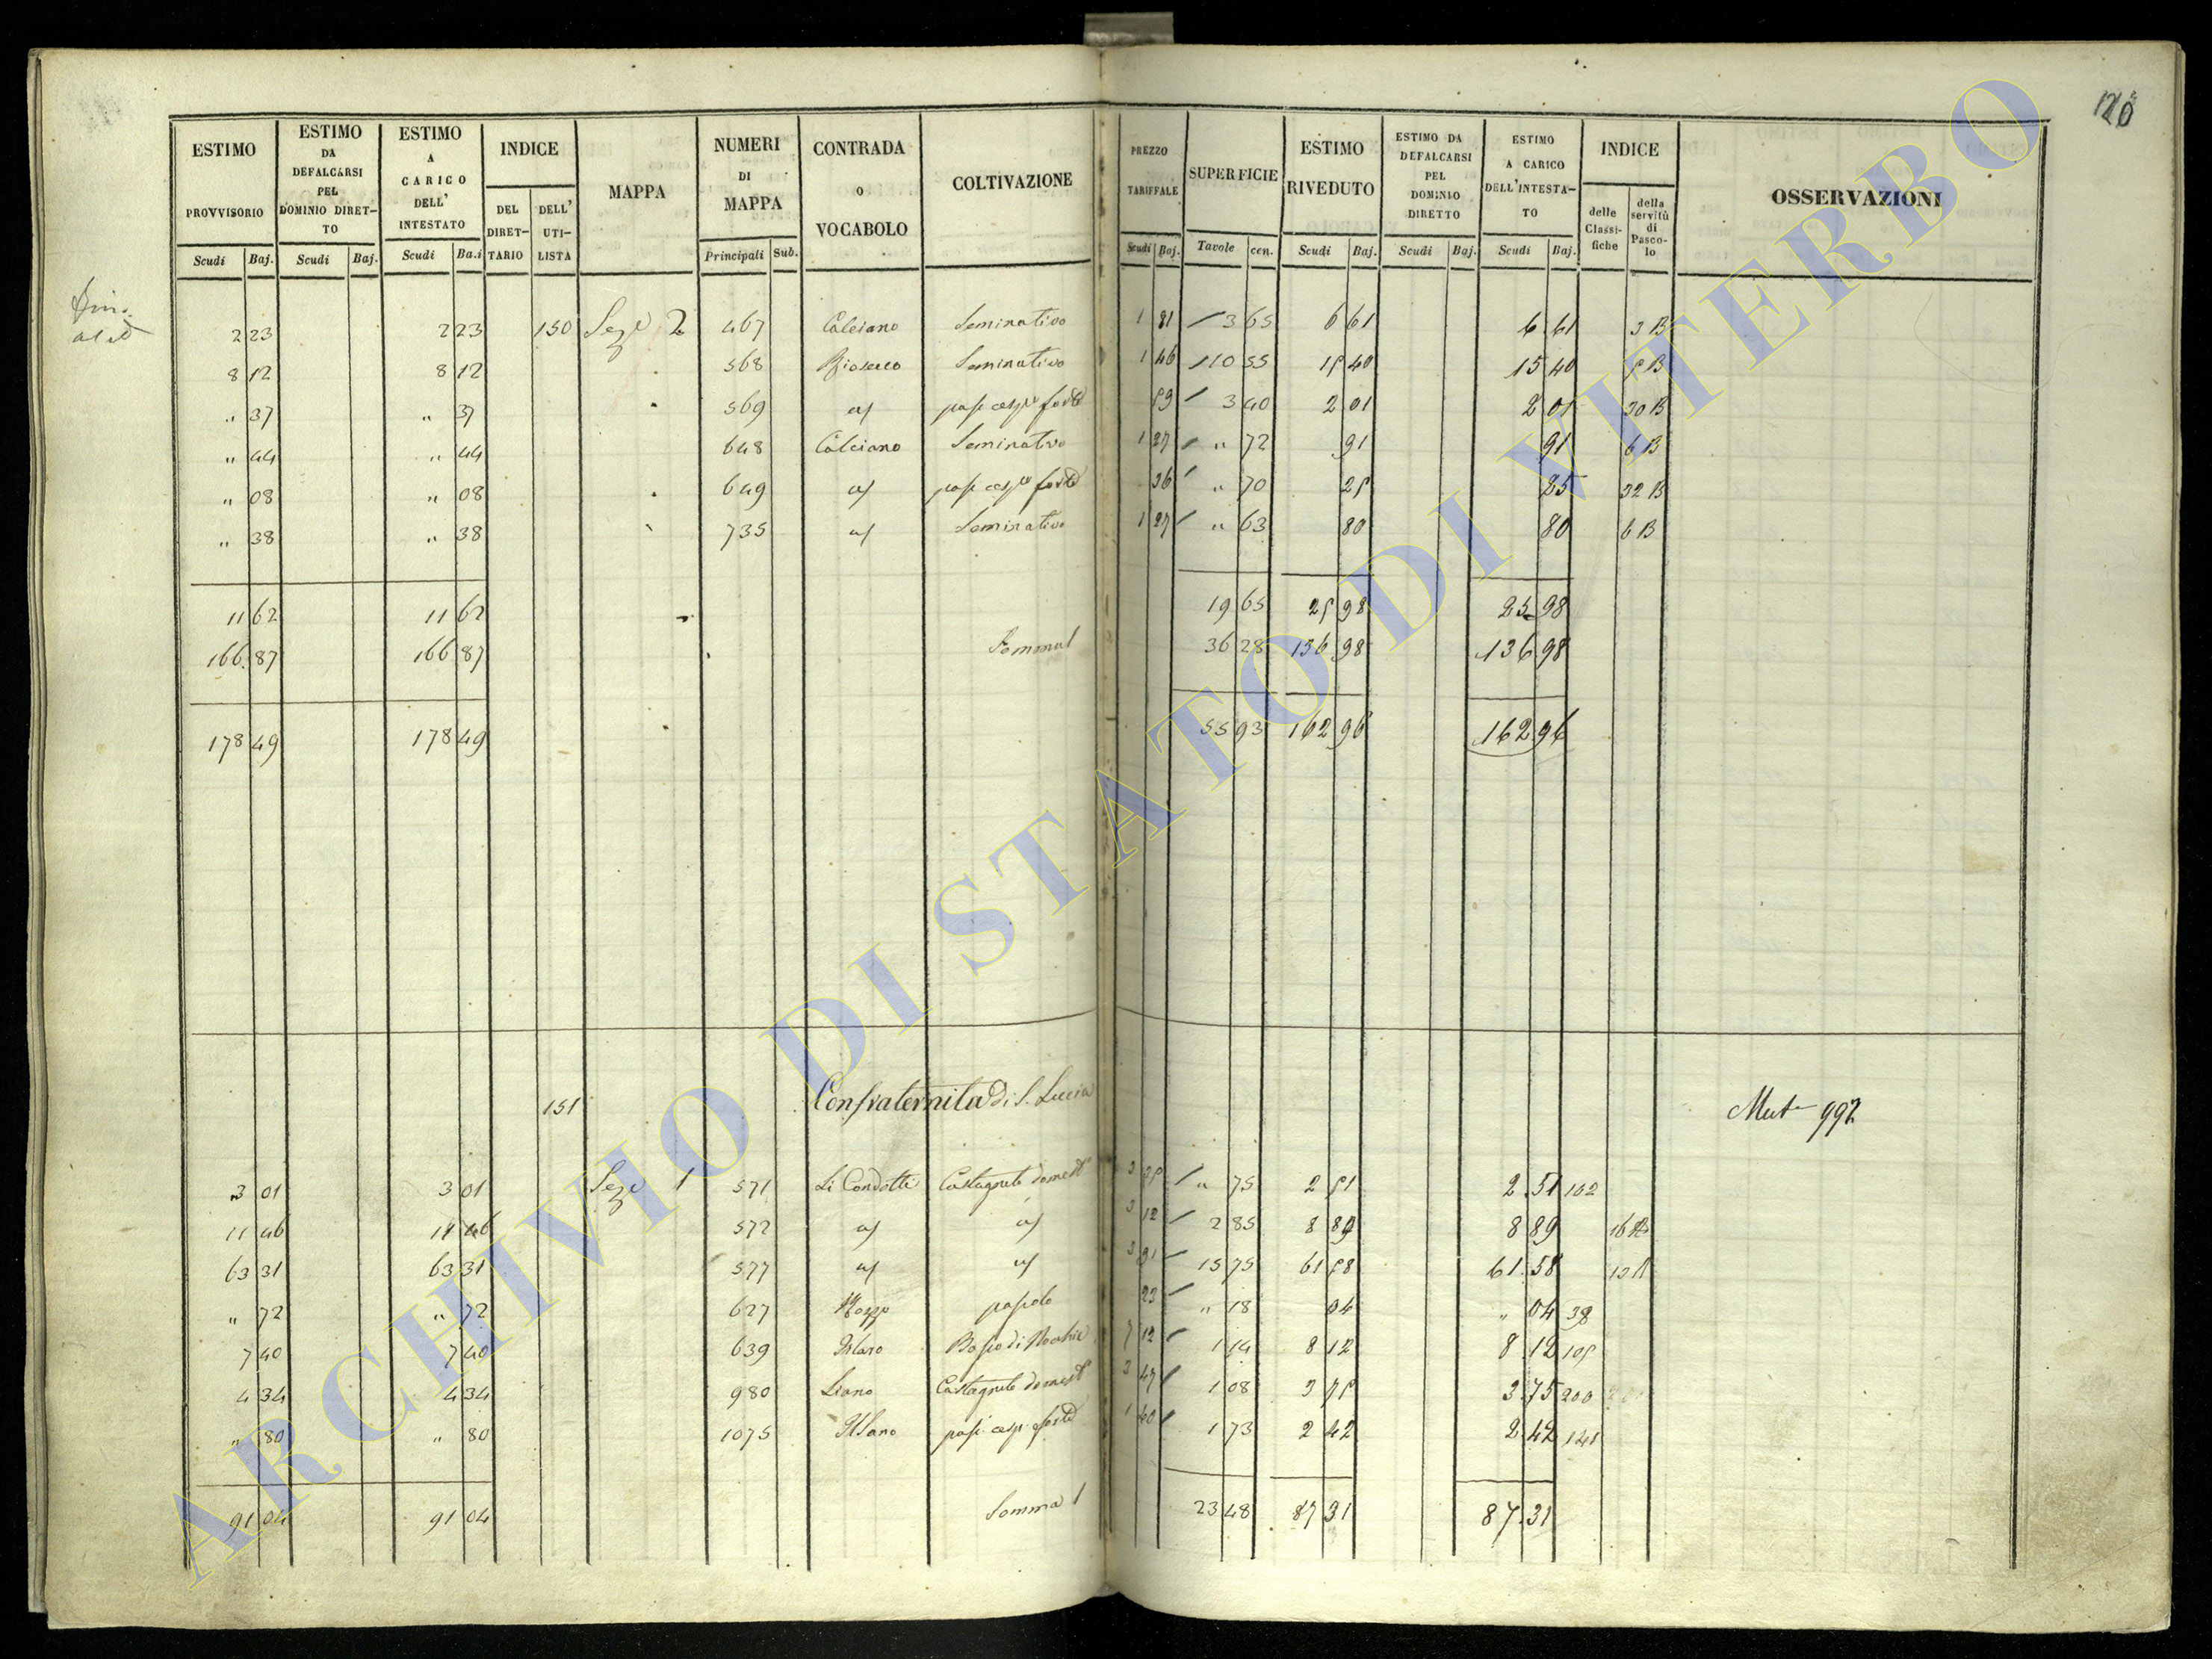 120
ESTIMO PROVVISORIO Scudi Baj. | ESTIMO DA DEFALCARSI PEL DOMINIO DIRETTO Scudi Baj. | ESTIMO A CARICO DELL' INTESTATO Scudi Ba.i | INDICE DEL DIRETTARIO DELL' UTILISTA | MAPPA | NUMERI DI MAPPA Principali Sub. | CONTRADA O VOCABOLO | COLTIVAZIONE | PREZZO TARIFFALE Scudi Baj. | SUPERFICIE Tavole cen. | ESTIMO RIVEDUTO Scudi Baj. | ESTIMO DA DEFALCARSI PEL DOMINIO DIRETTO Scudi Baj. | ESTIMO A CARICO DELL'INTESTATO Scudi Baj. | INDICE delle Classifiche della servitù di Pascolo | OSSERVAZIONI
2 23 2 23 150 Seze 2 467 Calciano Seminativo 1 81 3 65 6 61 6 61 3 B
8 12 8 12 568 Seminativo 1 46 10 55 15 40 15 40 5 B
" 37 " 37 569 a/ pasc cesp forte 59 3 40 2 01 2 01 30 B
" 44 " 44 648 Calciano Seminativo 1 27 " 72 91 91 6 B
" 08 " 08 649 a/ pasc cesp forte 36 " 70 25 25 32 B
" 38 " 38 735 a/ Seminativo 1 27 " 63 80 80 6 B
11 62 11 62 19 65 25 98 25 98
166 87 166 87 Somma 1 36 28 136 98 136 98
178 49 178 49 55 93 162 96 162 96
151 Confraternita di S. Lucia Mut 992
3 01 3 01 Seze 1 571 Li Condotti Castagneto domest 3 35 " 75 2 51 2.51 102
11 46 11 46 572 a/ a/ 3 12 2 85 8 89 8 89 16 B
63 31 63 31 577 a/ a/ 3 91 15 75 61 58 61.58
" 72 " 72 627 pascolo 23 " 18 04 " 04 38
7 40 7 40 639 7 12 1 14 8 12 8 12 105
4 34 4 34 980 Liano Castagneto domest 3 47 1 08 3 75 3.75 200
" 80 " 80 1075 pasc cesp forte 1 40 1 73 2 42 2 42 141
91 04 91 04 Somma 1 23 48 87 31 87.31
ARCHIVIO DI STATO DI VITERBO